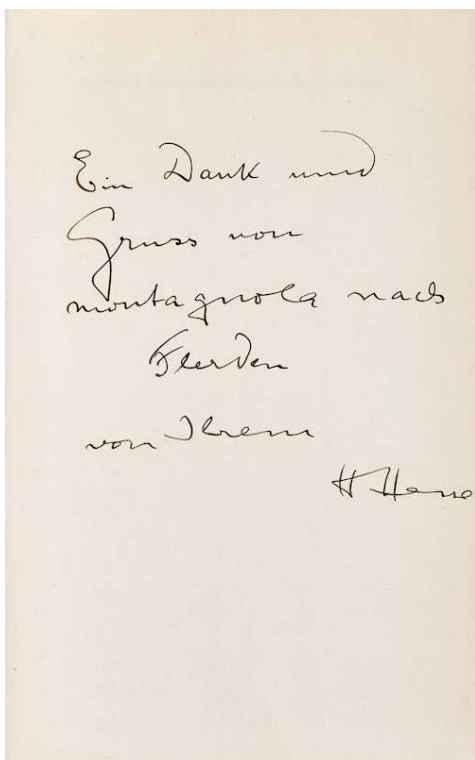 Ein Dank und
Gruss von
Montagnola nach
Flerden
von Ihrem
H Hesse